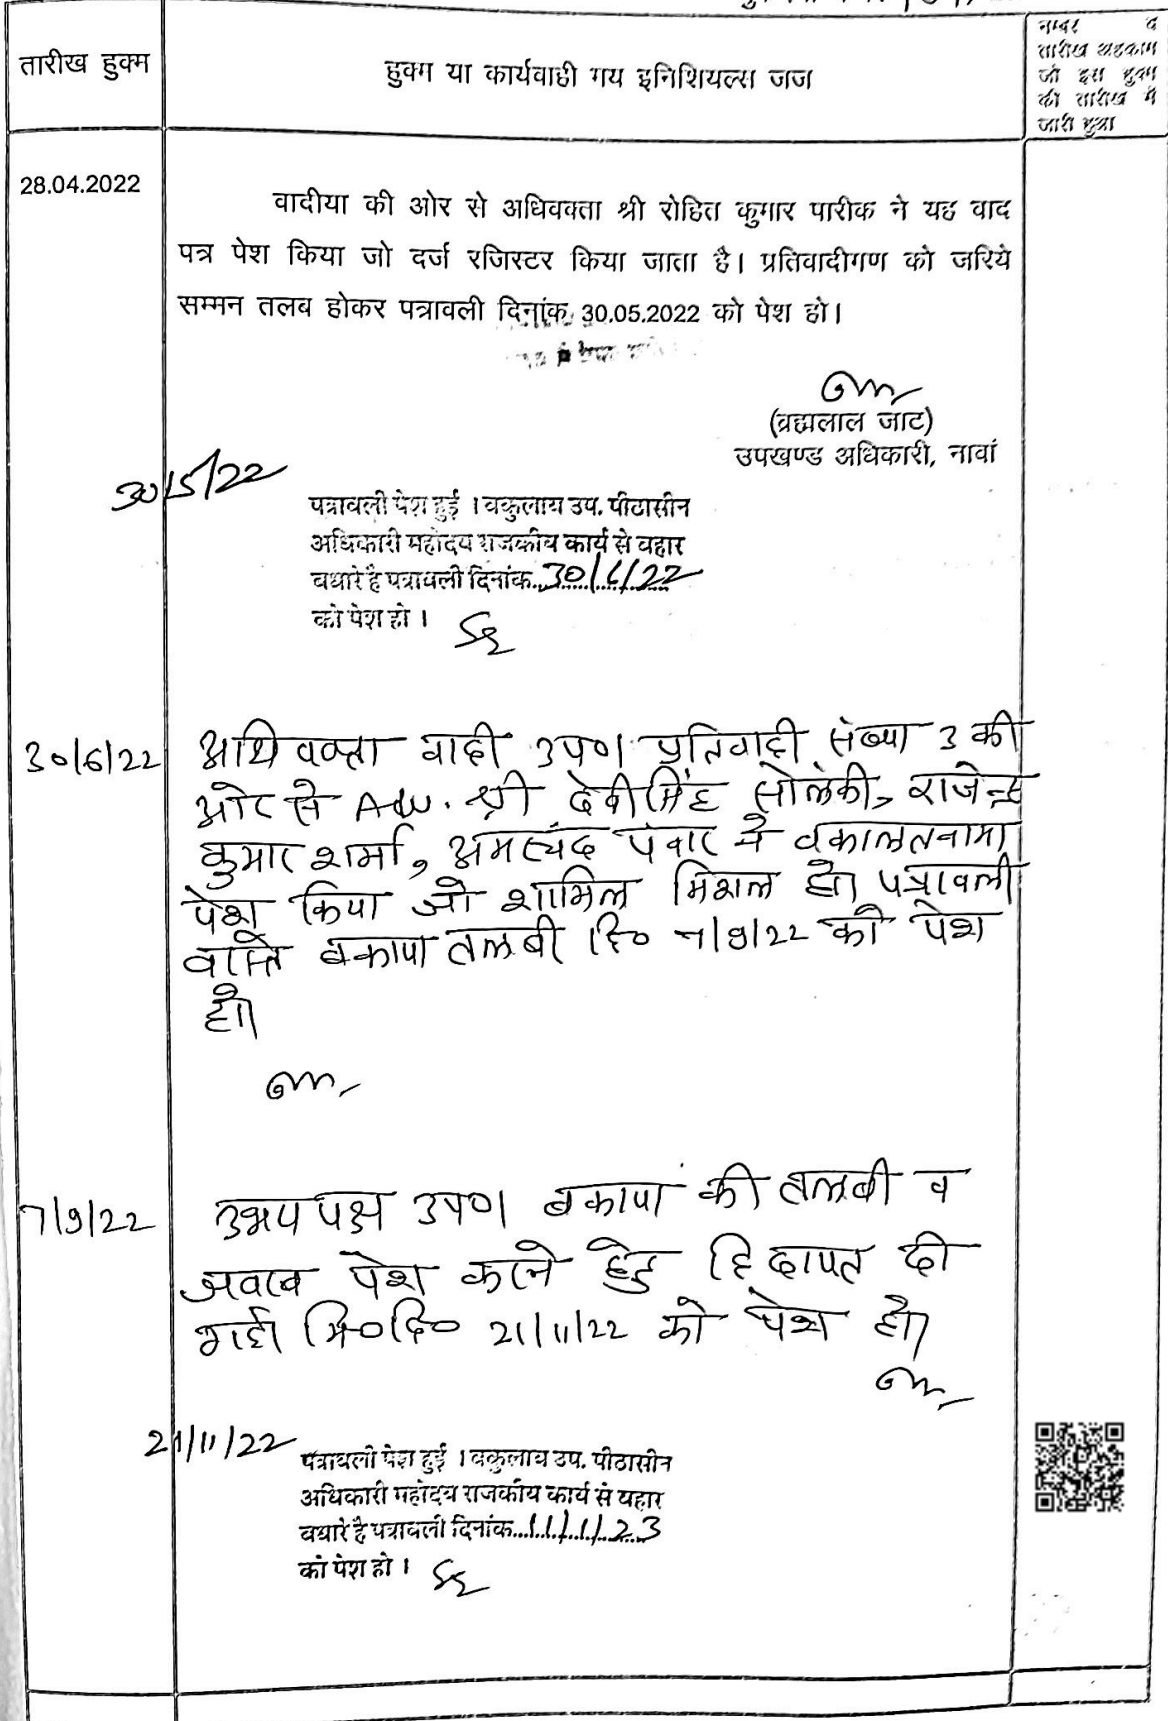 तारीख हुक्म
हुक्म या कार्यवाही मय इनिशियल्स जज
नम्बर व
तारीख अहकाम
जो इस हुक्म
की तारीख में
जारी हुआ
28.04.2022
वादीया की ओर से अधिवक्ता श्री रोहित कुमार पारीक ने यह वाद
पत्र पेश किया जो दर्ज रजिस्टर किया जाता है। प्रतिवादीगण को जरिये
सम्मन तलब होकर पत्रावली दिनांक 30.05.2022 को पेश हो।
(ब्रह्मलाल जाट)
उपखण्ड अधिकारी, नावां
30/5/22
पत्रावली पेश हुई । वकुलाय उप. पीठासीन
अधिकारी महोदय राजकीय कार्य से बहार
पधारे है पत्रावली दिनांक..30/6/22
को पेश हो ।
30/6/22
अधिवक्ता वादी उप०। प्रतिवादी संख्या 3 की
ओर से Adv. श्री देवीसिंह सोलंकी, राजेन्द्र
कुमार शर्मा, अमरचंद पंवार ने वकालतनामा
पेश किया जो शामिल मिसल हो। पत्रावली
वास्ते बकाया तलबी दि० 7/9/22 को पेश
हो।
7/9/22
उभय पक्ष उप०। बकाया की तलबी व
जवाब पेश करने हेतु हिदायत दी
गई। मि०दि० 21/11/22 को पेश हो।
21/11/22
पत्रावली पेश हुई । वकुलाय उप. पीठासीन
अधिकारी महोदय राजकीय कार्य से बहार
पधारे है पत्रावली दिनांक..11/1/23
को पेश हो ।